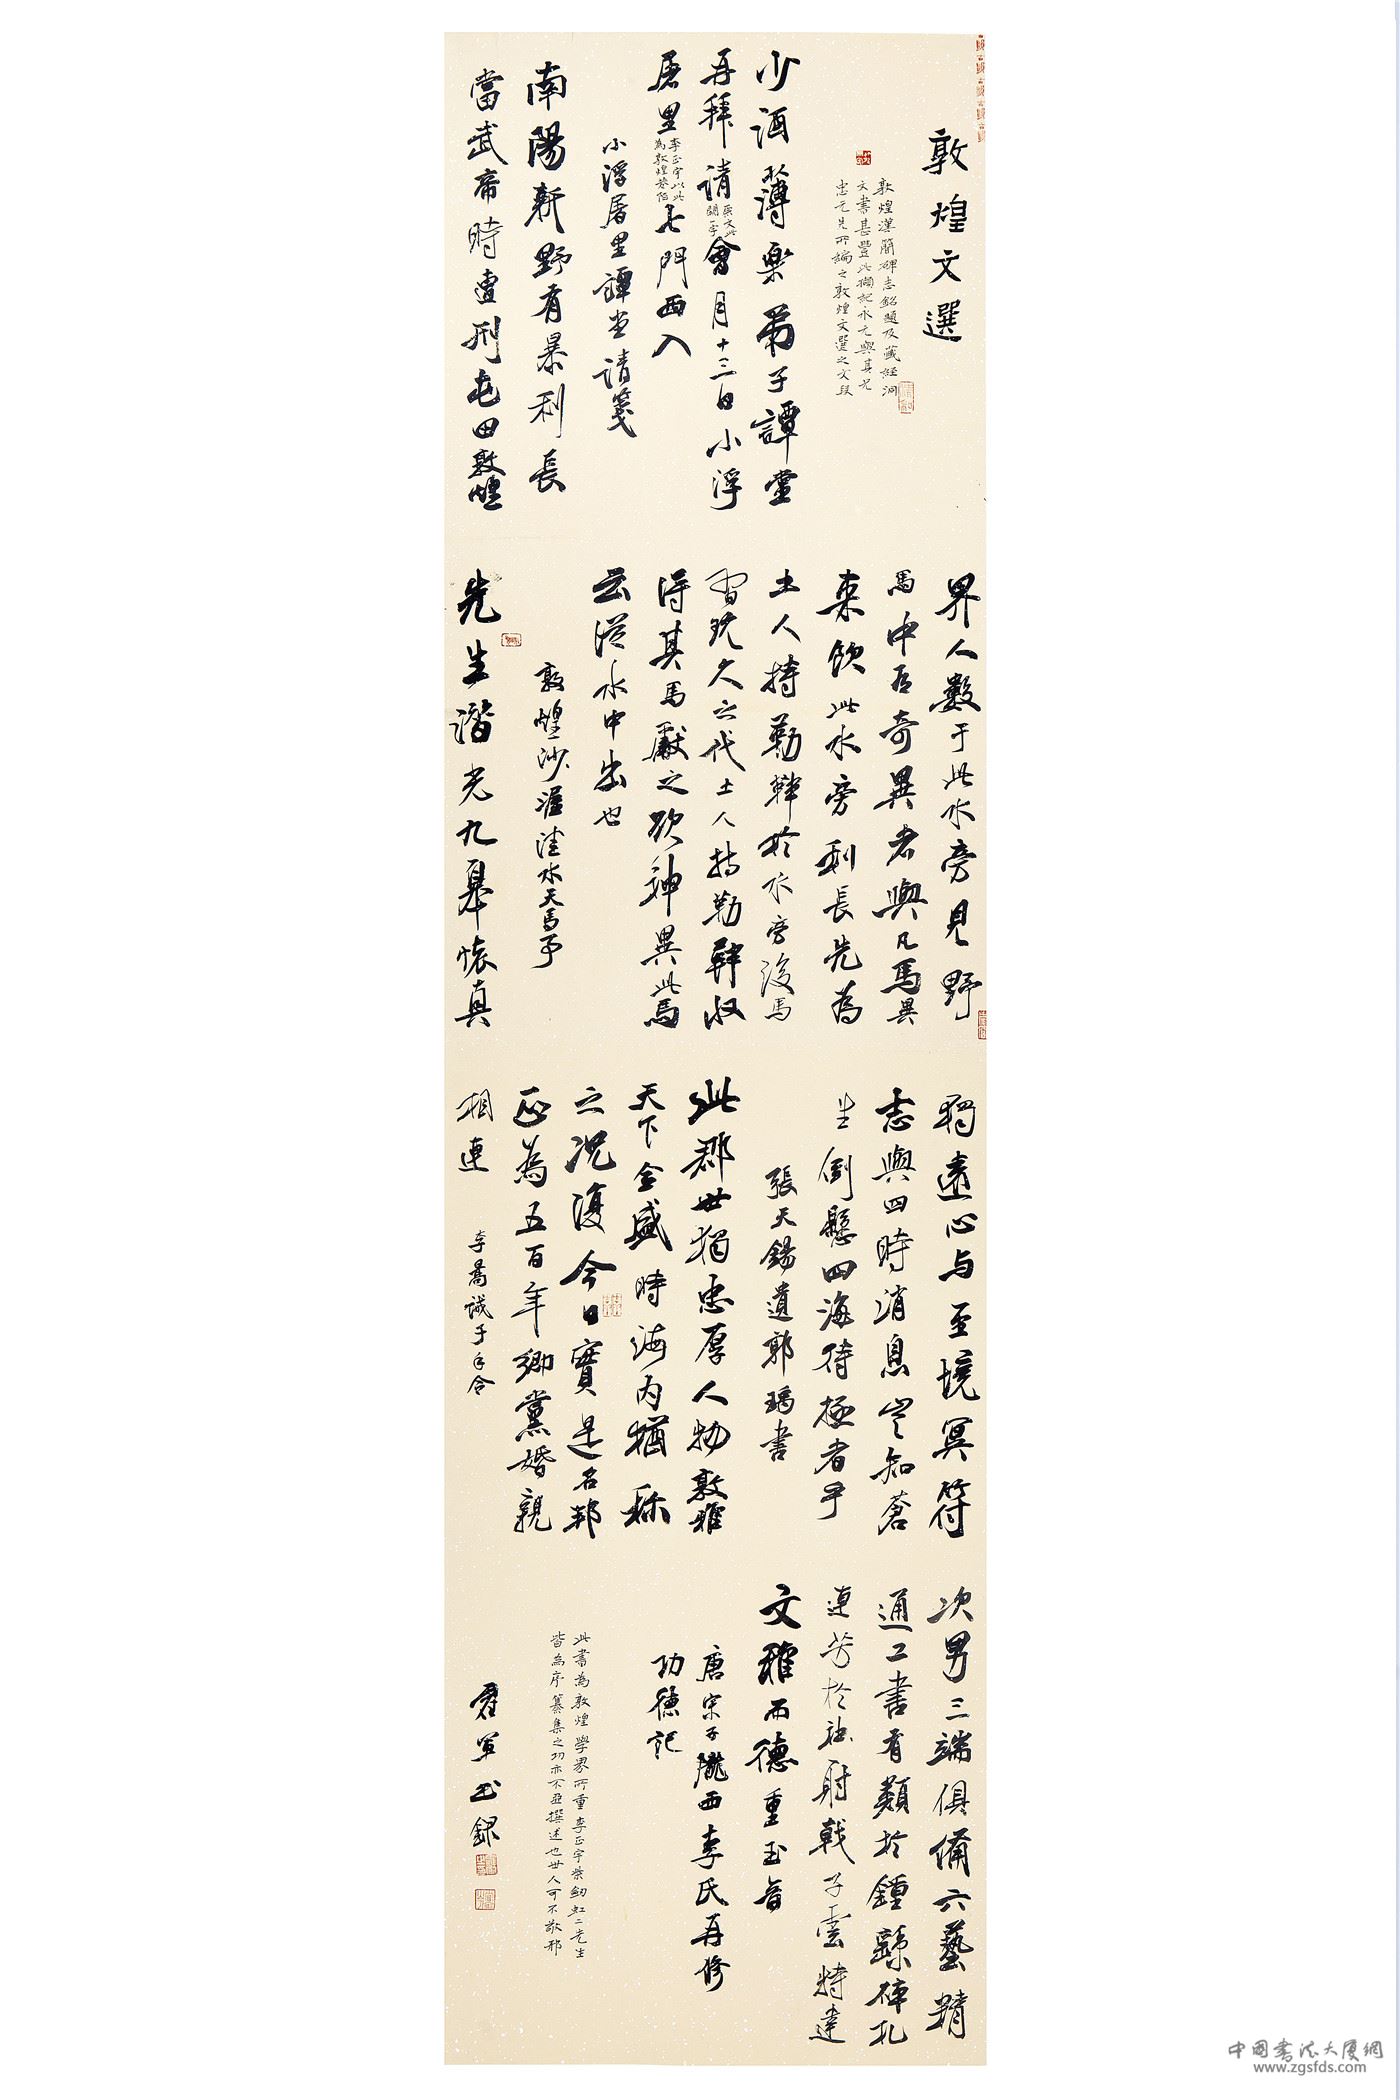 敦煌文選
敦煌漢簡碑志銘題及藏經洞
文書甚豐此擷記永元與其兄
忠元先所編之敦煌文選之文段
少酒薄樂弟子譚堂
再拜請會月十三日小浮
屠里七門西入
李正宇以此
為敦煌
小浮屠里譚堂請箋
南陽新野有暴利長
當武帝時遭刑屯田敦煌
界人數于此水旁見野
馬中有奇異者與凡馬異
來飲此水旁利長先為
土人持勒靽於水旁後馬
習玩久之代土人持勒靽收
得其馬獻之欲神異此馬
云從水中出也
敦煌沙渥洼水天馬事
先生潛光九皋懷真
獨遠心与至境冥符
志與四時消息豈知蒼
生倒懸四海待拯者乎
張天錫遺郭瑀書
此郡世猶忠厚人物敦雅
天下全盛時海内猶稱
之況復今日實是名邦
正為五百年鄉黨婚親
相連
李暠誡子手令
次男三端俱備六藝精
通工書有類於鍾繇碎札
連芳於射戟子雲特達
文雅而德重王音
唐宗子隴西李氏再修
功德記
此書為敦煌學界所重李正宇柴劍虹二先生
皆為序纂集之功亦不亞撰述也世人可不敬邪
君軍書録
中国书法大厦網
www.zgsfds.com